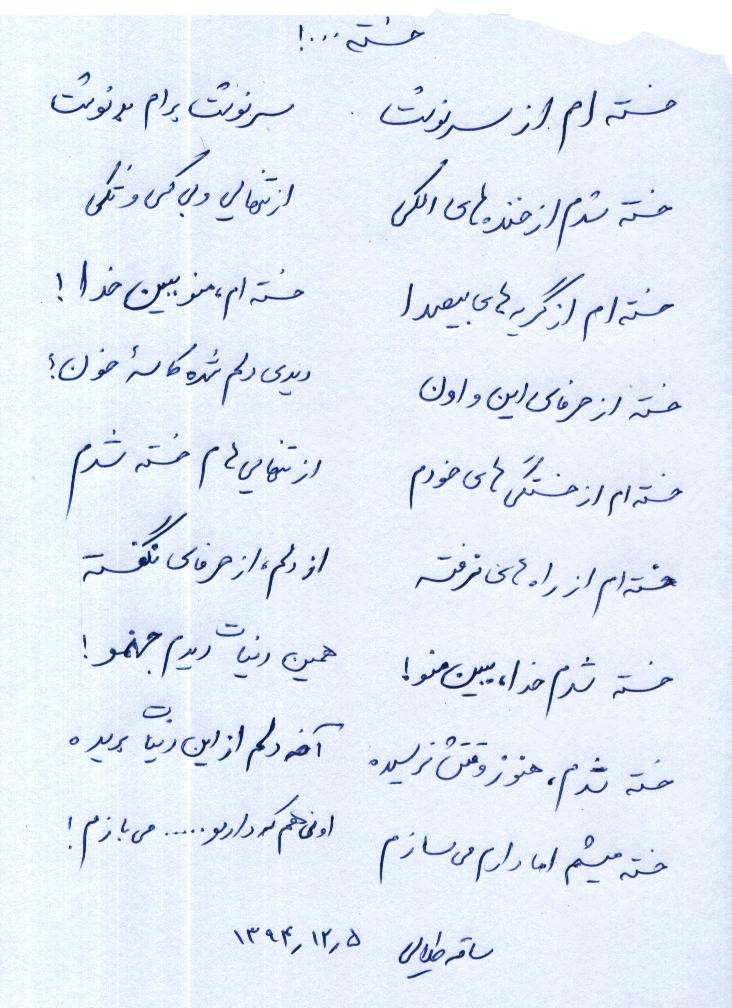 خسته ...!
خسته ام از سرنوشت سرنوشت برام بد نوشت
خسته شدم از خنده های الکی از تنهایی و بی کسی و تکی
خسته ام از گریه های بیصدا خسته ام، منو ببین خدا!
خسته از حرفای این و اون دیدی دلم شده کاسهٔ خون؟
خسته ام از خستگی های خودم از تنهایی هام خسته شدم
خسته ام از راه های نرفته از دلم، از حرفای نگفته
خسته شدم خدا، ببین منو! همین دنیات دیدم جهنمو!
خسته شدم، هنوز وقتش نرسیده آخه دلم از این دنیات بریده
خسته میشم اما دارم می سازم اونی هم که دارمو ..... می بازم!
ساقه طلایی ۱۳۹۴٫۱۲٫۵